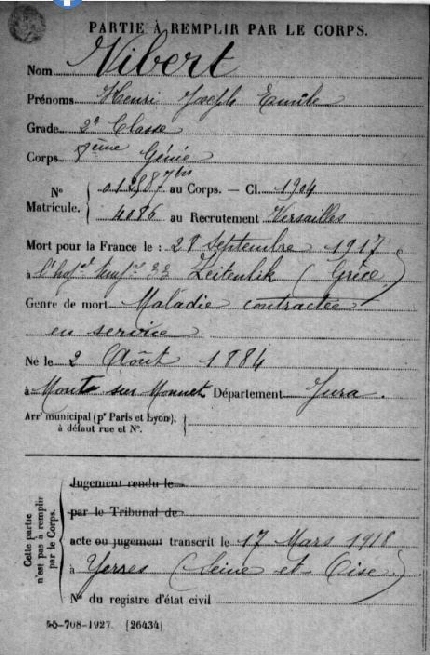 PARTIE À REMPLIR PAR LE CORPS.
Nom Vibert
Prénoms Henri Joseph Emile
Grade 2e Classe
Corps 8ème Génie
No 01987 bis au Corps. — Cl. 1904
Matricule. 4086 au Recrutement Versailles
Mort pour la France le : 28 Septembre 1917
à Zeitenlik (Grèce)
Genre de mort Maladie contractée
en service
Né le 2 Août 1884
à Monts sur Monnet Département Jura.
Arrt municipal (pr Paris et Lyon),
à défaut rue et No.
Cette partie
n'est pas à remplir
par le Corps.
Jugement rendu le
par le Tribunal de
acte ou jugement transcrit le 17 Mars 1918
à Yerres (Seine et Oise)
No du registre d'état civil
-708-1927. [26434]